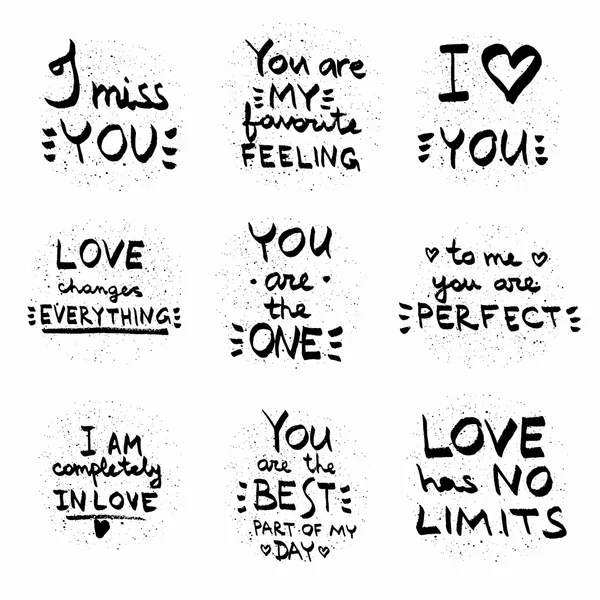 I miss
YOU
You are
MY
favorite
FEELING
I ♥
YOU
LOVE
changes
EVERYTHING
YOU
• are •
the
ONE
♥ to me ♥
you are
PERFECT
I AM
completely
IN LOVE
♥
YOU
are the
BEST
PART OF MY
♥ DAY ♥
LOVE
has NO
LIMITS